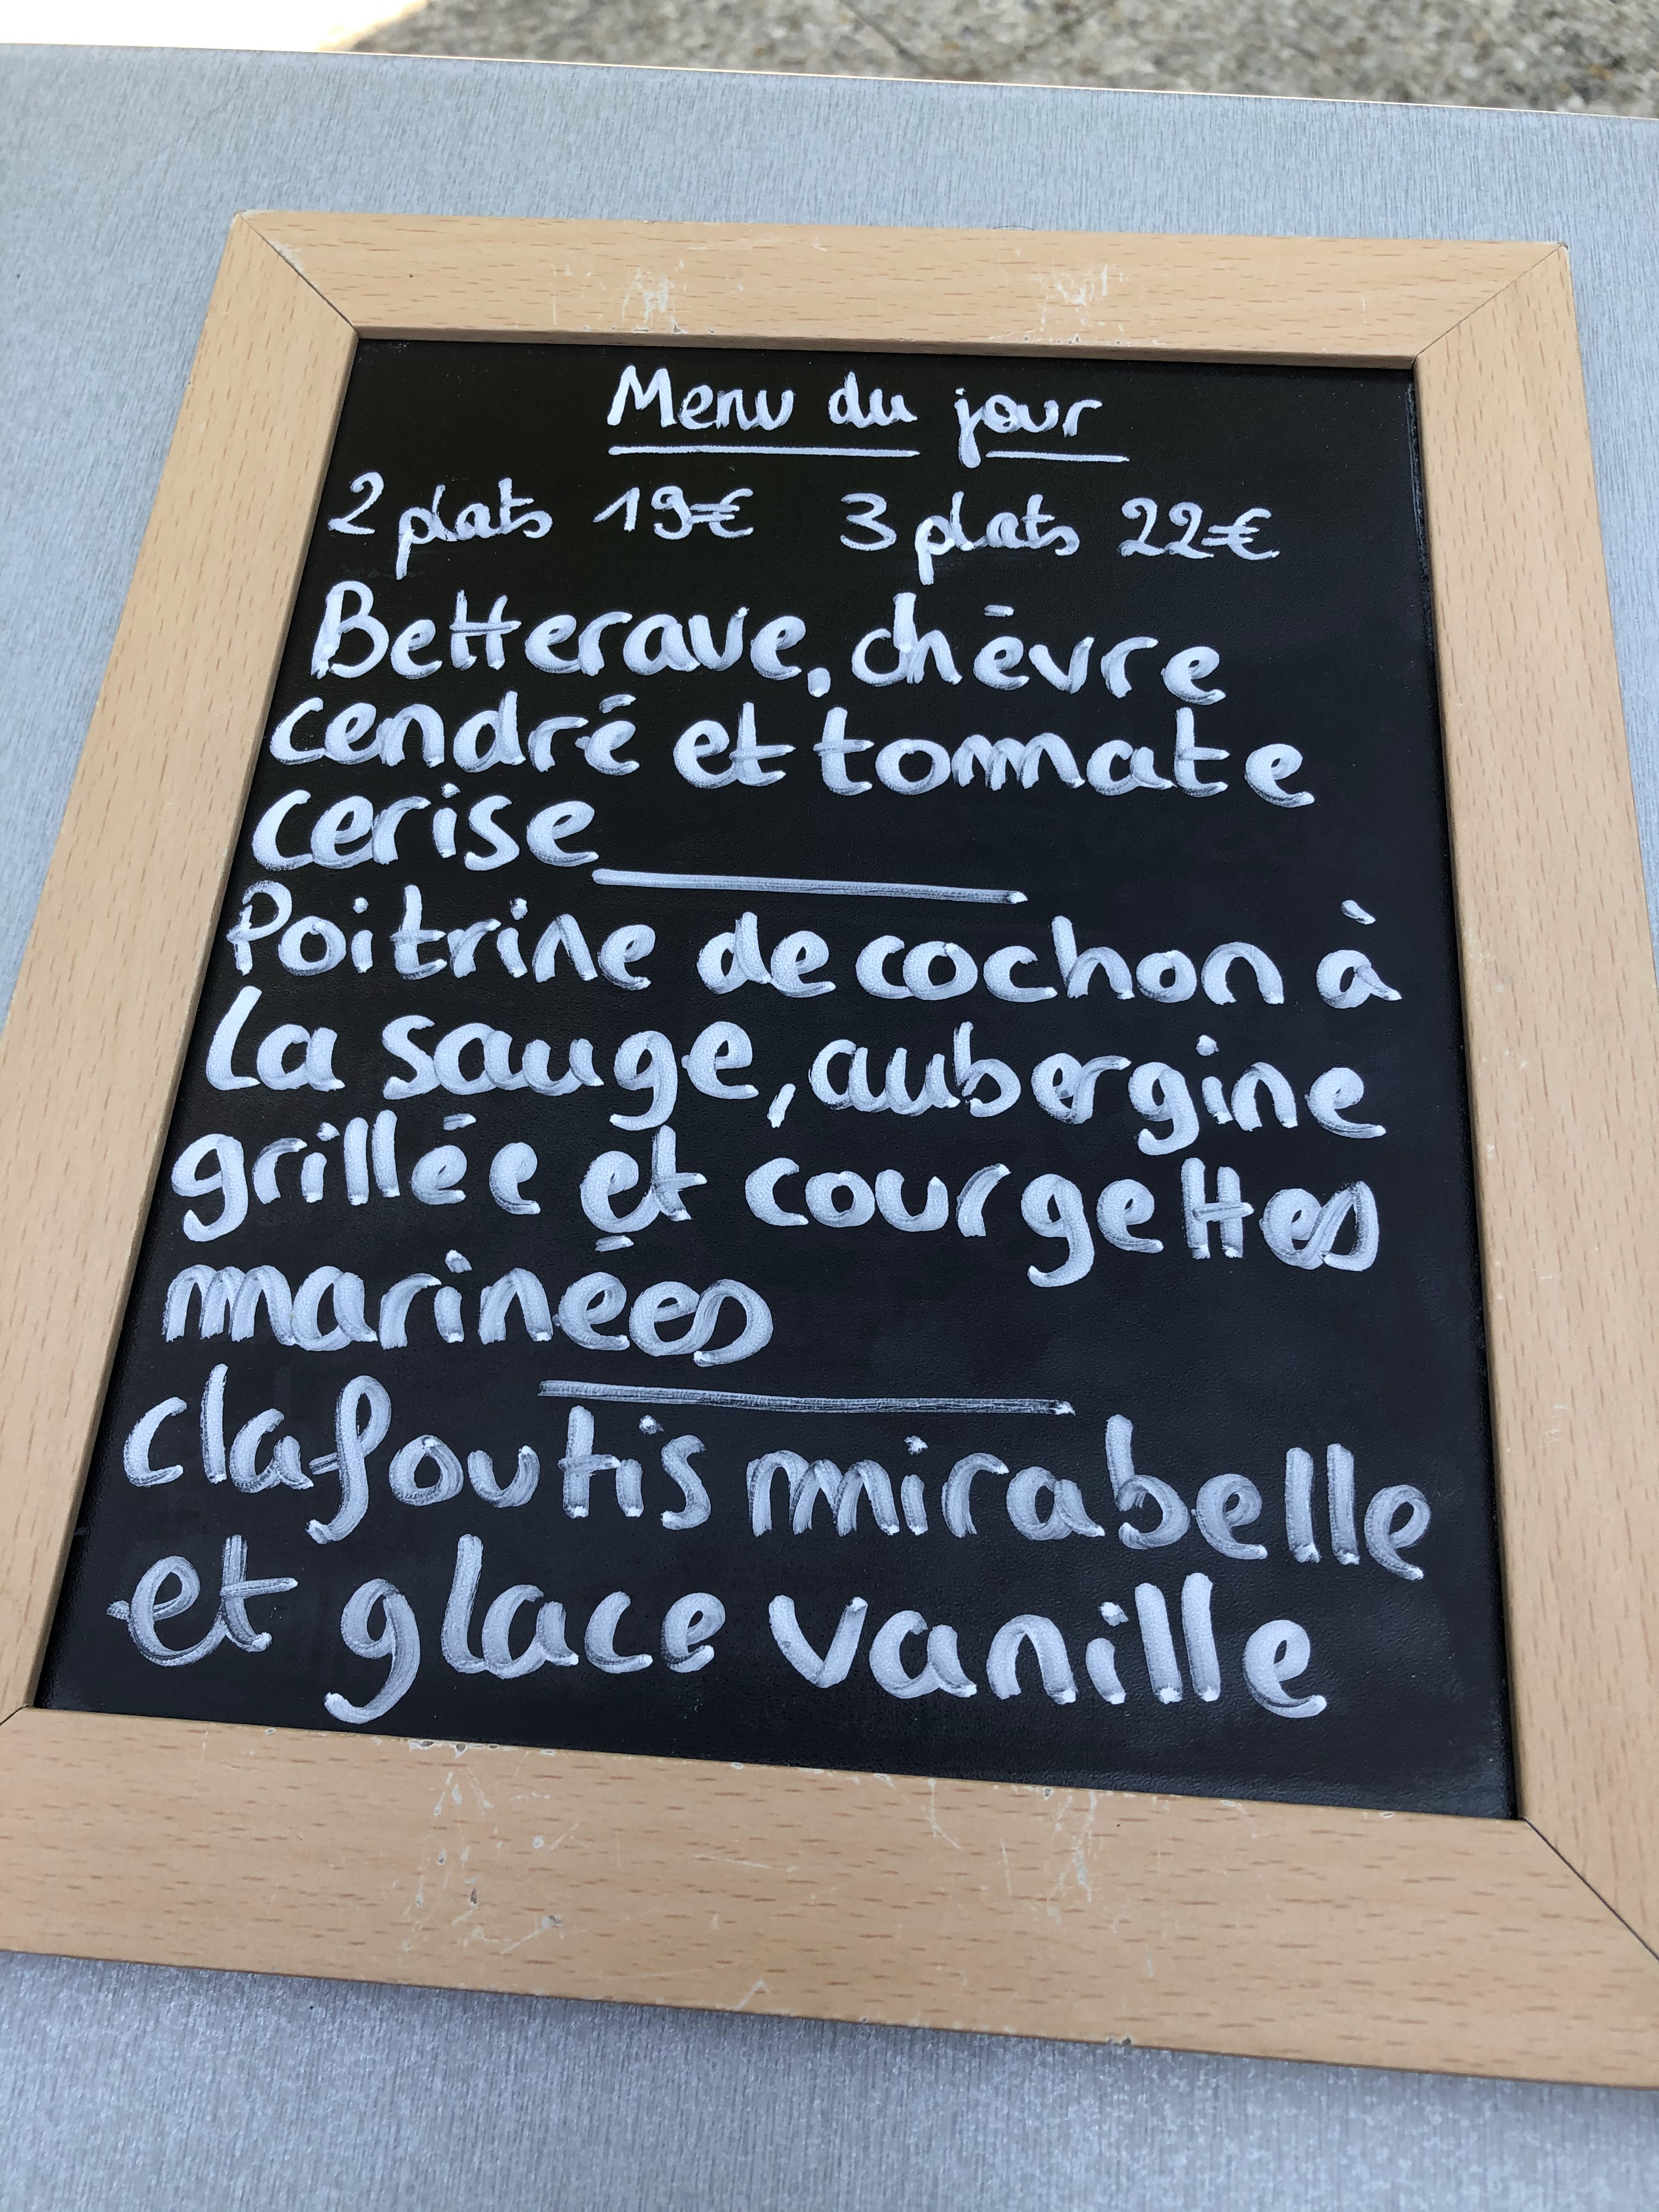 Menu du jour
2 plats 19€ 3 plats 22€
Betterave, chévre
cendré et tommate
cerise
Poitrine de cochon à
la sauge, aubergine
grillée et courgettes
marinées
clafoutis mirabelle
et glace vanille